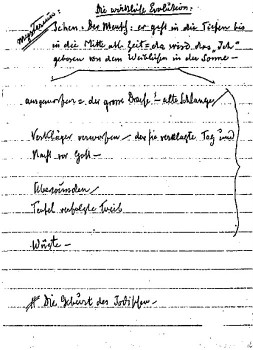 Mysterium:
Die wirkliche Evolution.
Sehen. Der Mensch: er geht in die Tiefen bis
in die Mitte all. Zeit = da wird das „Ich"
geboren von dem Weiblichen in der Sonne –
ausgeworfen = der grosse Drache! – alte Schlange
Verkläger verworfen / der sie verklagte Tag und
Nacht vor Gott –
Überwunden /
Teufel verfolgte Weib
Wüste –
Die Geburt des